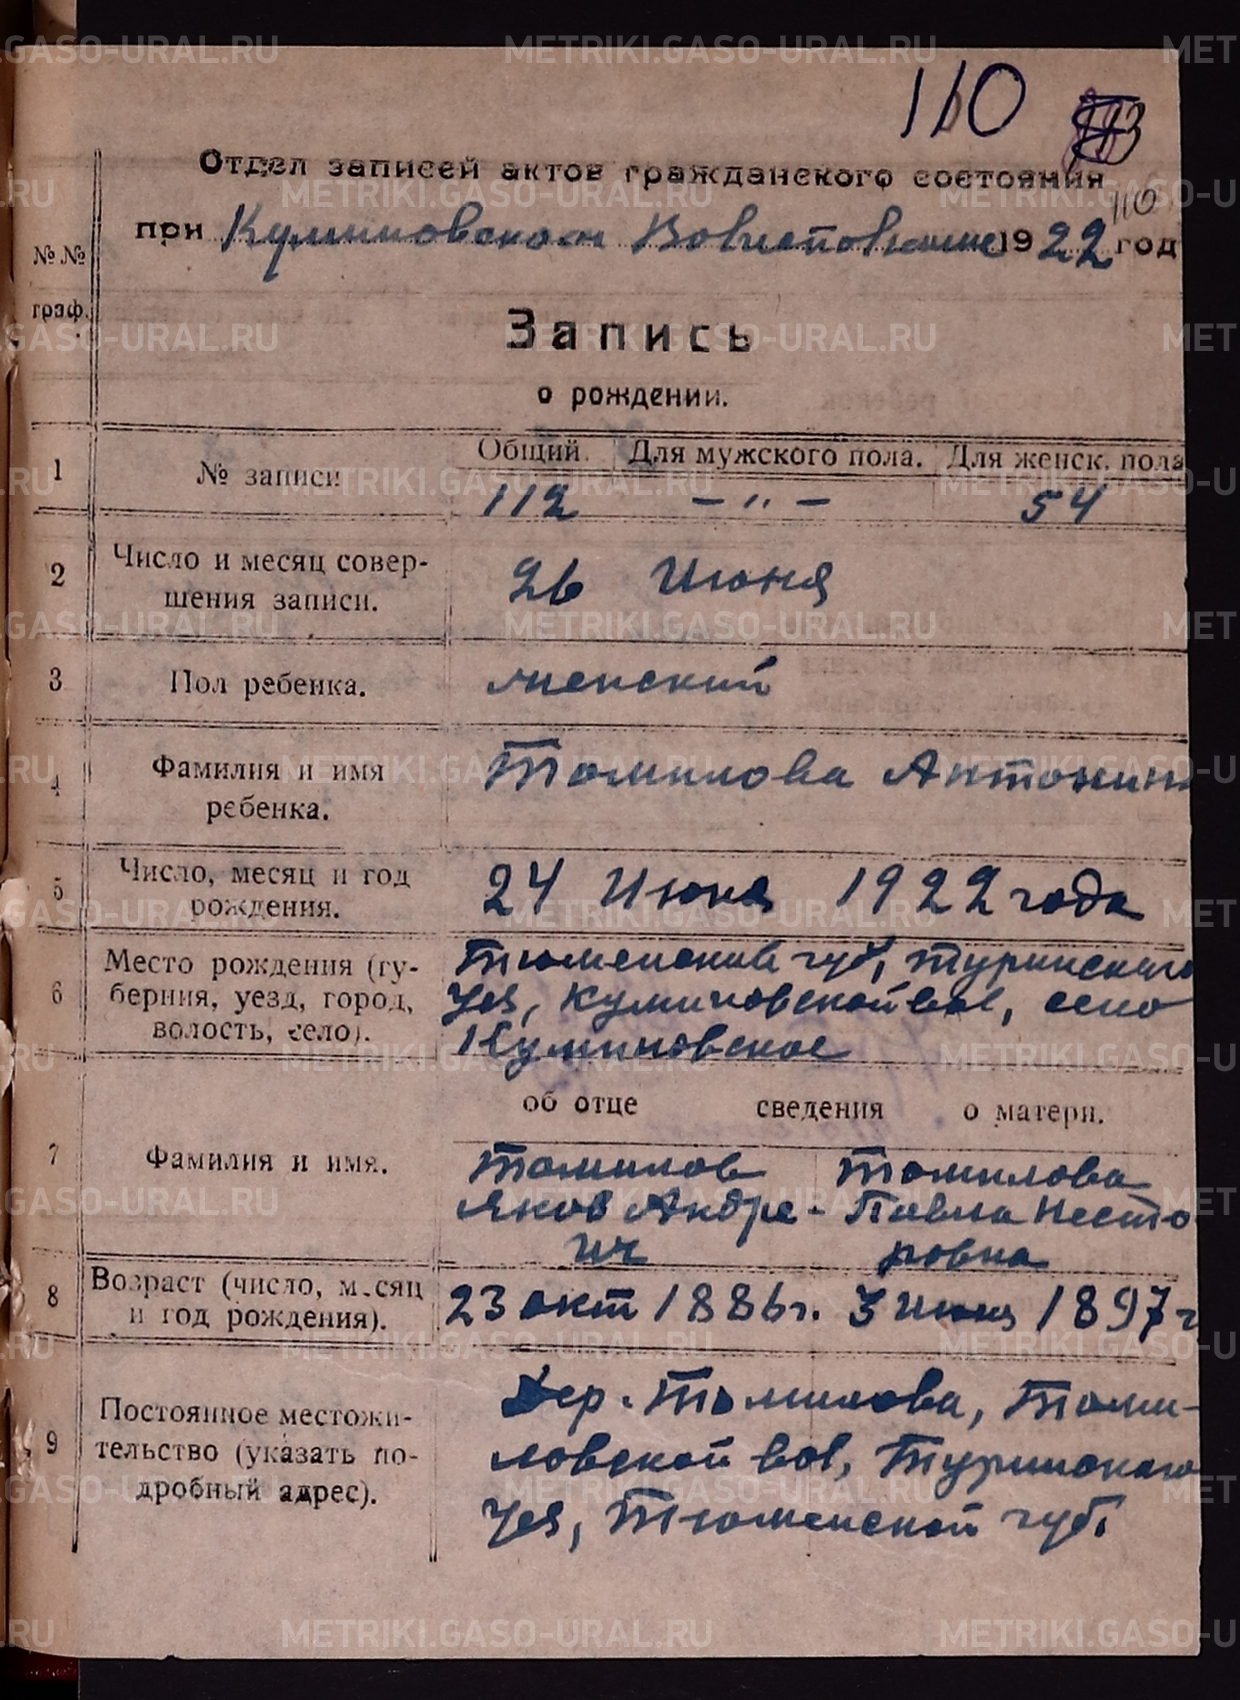 110 113
Отдел записей актов гражданского состояния
110
при Куминовском Волисполкоме 1922 год
№№
граф.
Запись
о рождении.
Общий. Для мужского пола. Для женск. пола
1 № записи 112 – " – 54
2 Число и месяц совер-
шения записи. 26 Июня
3 Пол ребенка. женский
4 Фамилия и имя Томилова Антонина
ребенка.
5 Число, месяц и год 24 Июня 1922 года
рождения.
6 Место рождения (гу- Тюменской губ, Туринского
берния, уезд, город, уез, Куминовской вол, село
волость, село). Куминовское
об отце сведения о матери.
7 Фамилия и имя. Томилов Томилова
Яков Андре- Павла Несто
ич ровна
8 Возраст (число, месяц 23 окт 1886г. 3 Июня 1897 г
и год рождения).
9 Постоянное местожи- Дер. Томилова, Томи-
тельство (указать по- ловской вол, Туринского
дробный адрес). уез, Тюменской губ.
METRIKI.GASO-URAL.RU